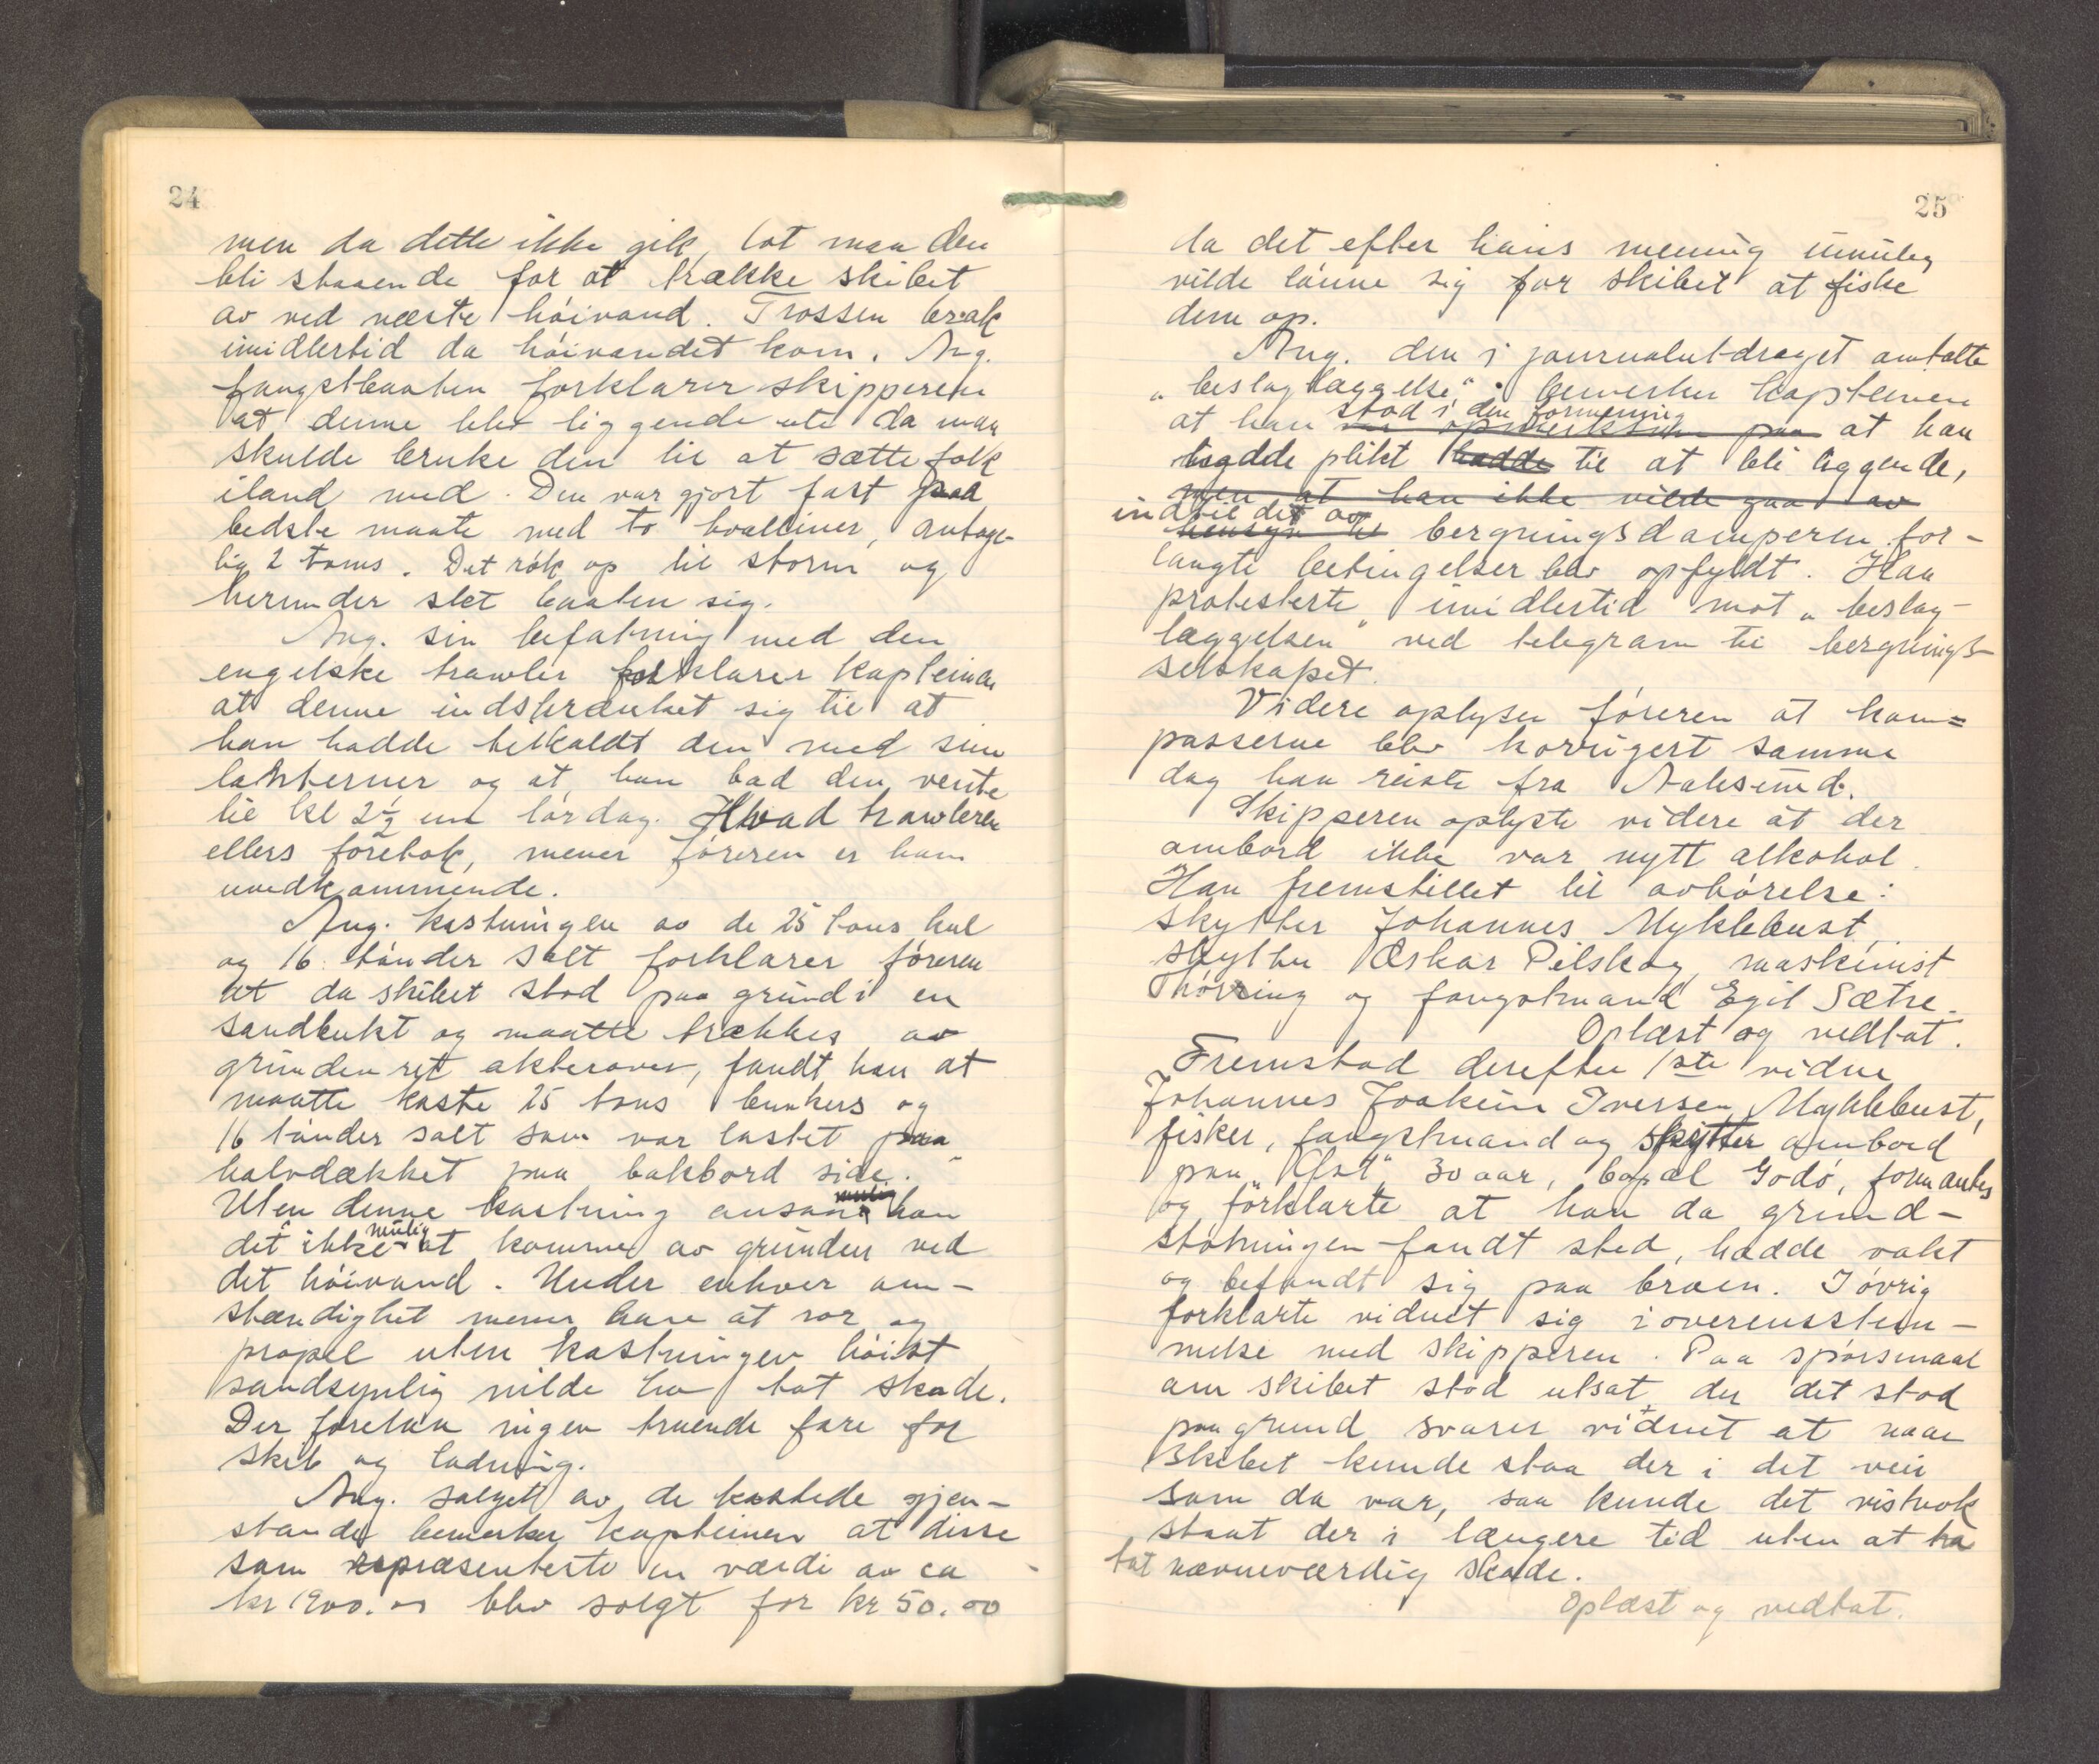 24
men da dette ikke gik, lot man den
bli staaende for at trække skibet
av ved næste høivand. Trossen brak
imidlertid da høivandet kom. Ang.
fangstbaaten forklarer skipperen
at denne blev liggende ute da man
skulde bruke den til at sætte folk
iland med. Den var gjort fast paa
bedste maate med to hvalliner, antage-
lig 2 toms. Det røk op til storm og
herunder slet baaten sig.
Ang. sin befatning med den
engelske trawler forklarer kapteinen
at denne indskrænket sig til at
han hadde tilkaldt den med sine
lanterner og at han bad den vente
til kl 2½ em lørdag. Hvad trawleren
ellers foretok, mener føreren er ham
uvedkommende.
Ang. kastningen av de 25 tons kul
og 16 tønder salt forklarer føreren
at da skibet stod paa grund i en
sandbukt og maatte trækkes av
grunden ret akterover, fandt han at
maatte kaste 25 tons bunkers og
16 tønder salt som var lastet paa
halvdækket paa bakbord side.
Uten denne kastning ansaa han
det ikke mulig at komme av grunden ved
det høivand. Under enhver om-
stændighet mener han at ror og
propel uten kastningen høist
sandsynlig vilde ha tat skade.
Der forelaa ingen truende fare for
skib og ladning.
Ang. salget av de kastede gjen-
stande bemerker kapteinen at disse
som repræsenterte en værdi av ca
kr 1900.00 blev solgt for kr 50.00
25
da det efter hans mening umulig
vilde lønne sig for skibet at fiske
dem op.
Ang. den i journalutdraget omtalte
"beslaglæggelse" bemerker kapteinen
at han stod i den formening at han
hadde plikt til at bli liggende,
men at han ikke vilde gaa av
indtil det av bergningsdamperen for-
langte betingelser blev opfyldt. Han
protesterte imidlertid mot "beslag-
læggelsen" ved telegram til bergnings-
selskapet.
Videre oplyser føreren at kom=
passerne blev korrigert samme
dag han reiste fra Aalesund.
Skipperen oplyste videre at der
ombord ikke var nytt alkohol.
Han fremstillet til avhørelse:
skytter Johannes Myklebust,
skytter Oskar Pilskog, maskinist
Thørring og fangstmand Egil Sætre.
Oplæst og vedtat.
Fremstod derefter 1ste vidne
Johannes Joakim Iversen Myklebust,
fisker, fangstmand og skytter ombord
paa 30 aar, bopæl Godø, formantes
og forklarte at han da grund-
støtningen fandt sted, hadde vakt
og befandt sig paa broen. Iøvrig
forklarte vidnet sig i overensstem-
melse med skipperen. Paa spørsmaal
om skibet stod utsat der det stod
paa grund svarer vidnet at naar
skibet kunde staa der i det veir
som da var, saa kunde det vistnok
staat der i længere tid uten at ha
tat nævneværdig skade.
Oplæst og vedtat.